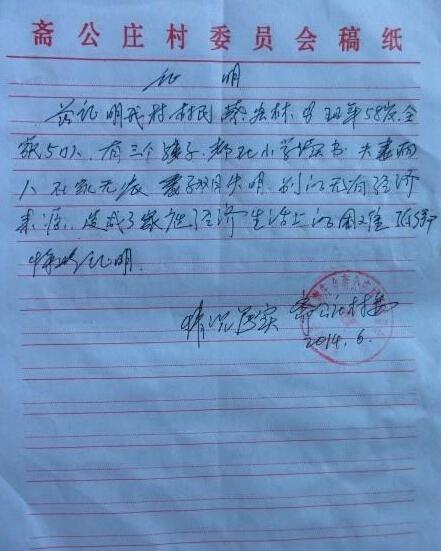 斋公庄村委员会稿纸
证 明
兹证明我村村民蔡宏林,男现年58岁,全
家5口人,有三个孩子,都在小学读书,夫妻两
人在家无农,妻子双目失明,别的无有经济
来源,造成了家庭经济生活上的困难
特此证明
情况属实 斋公庄村委
2014.6.